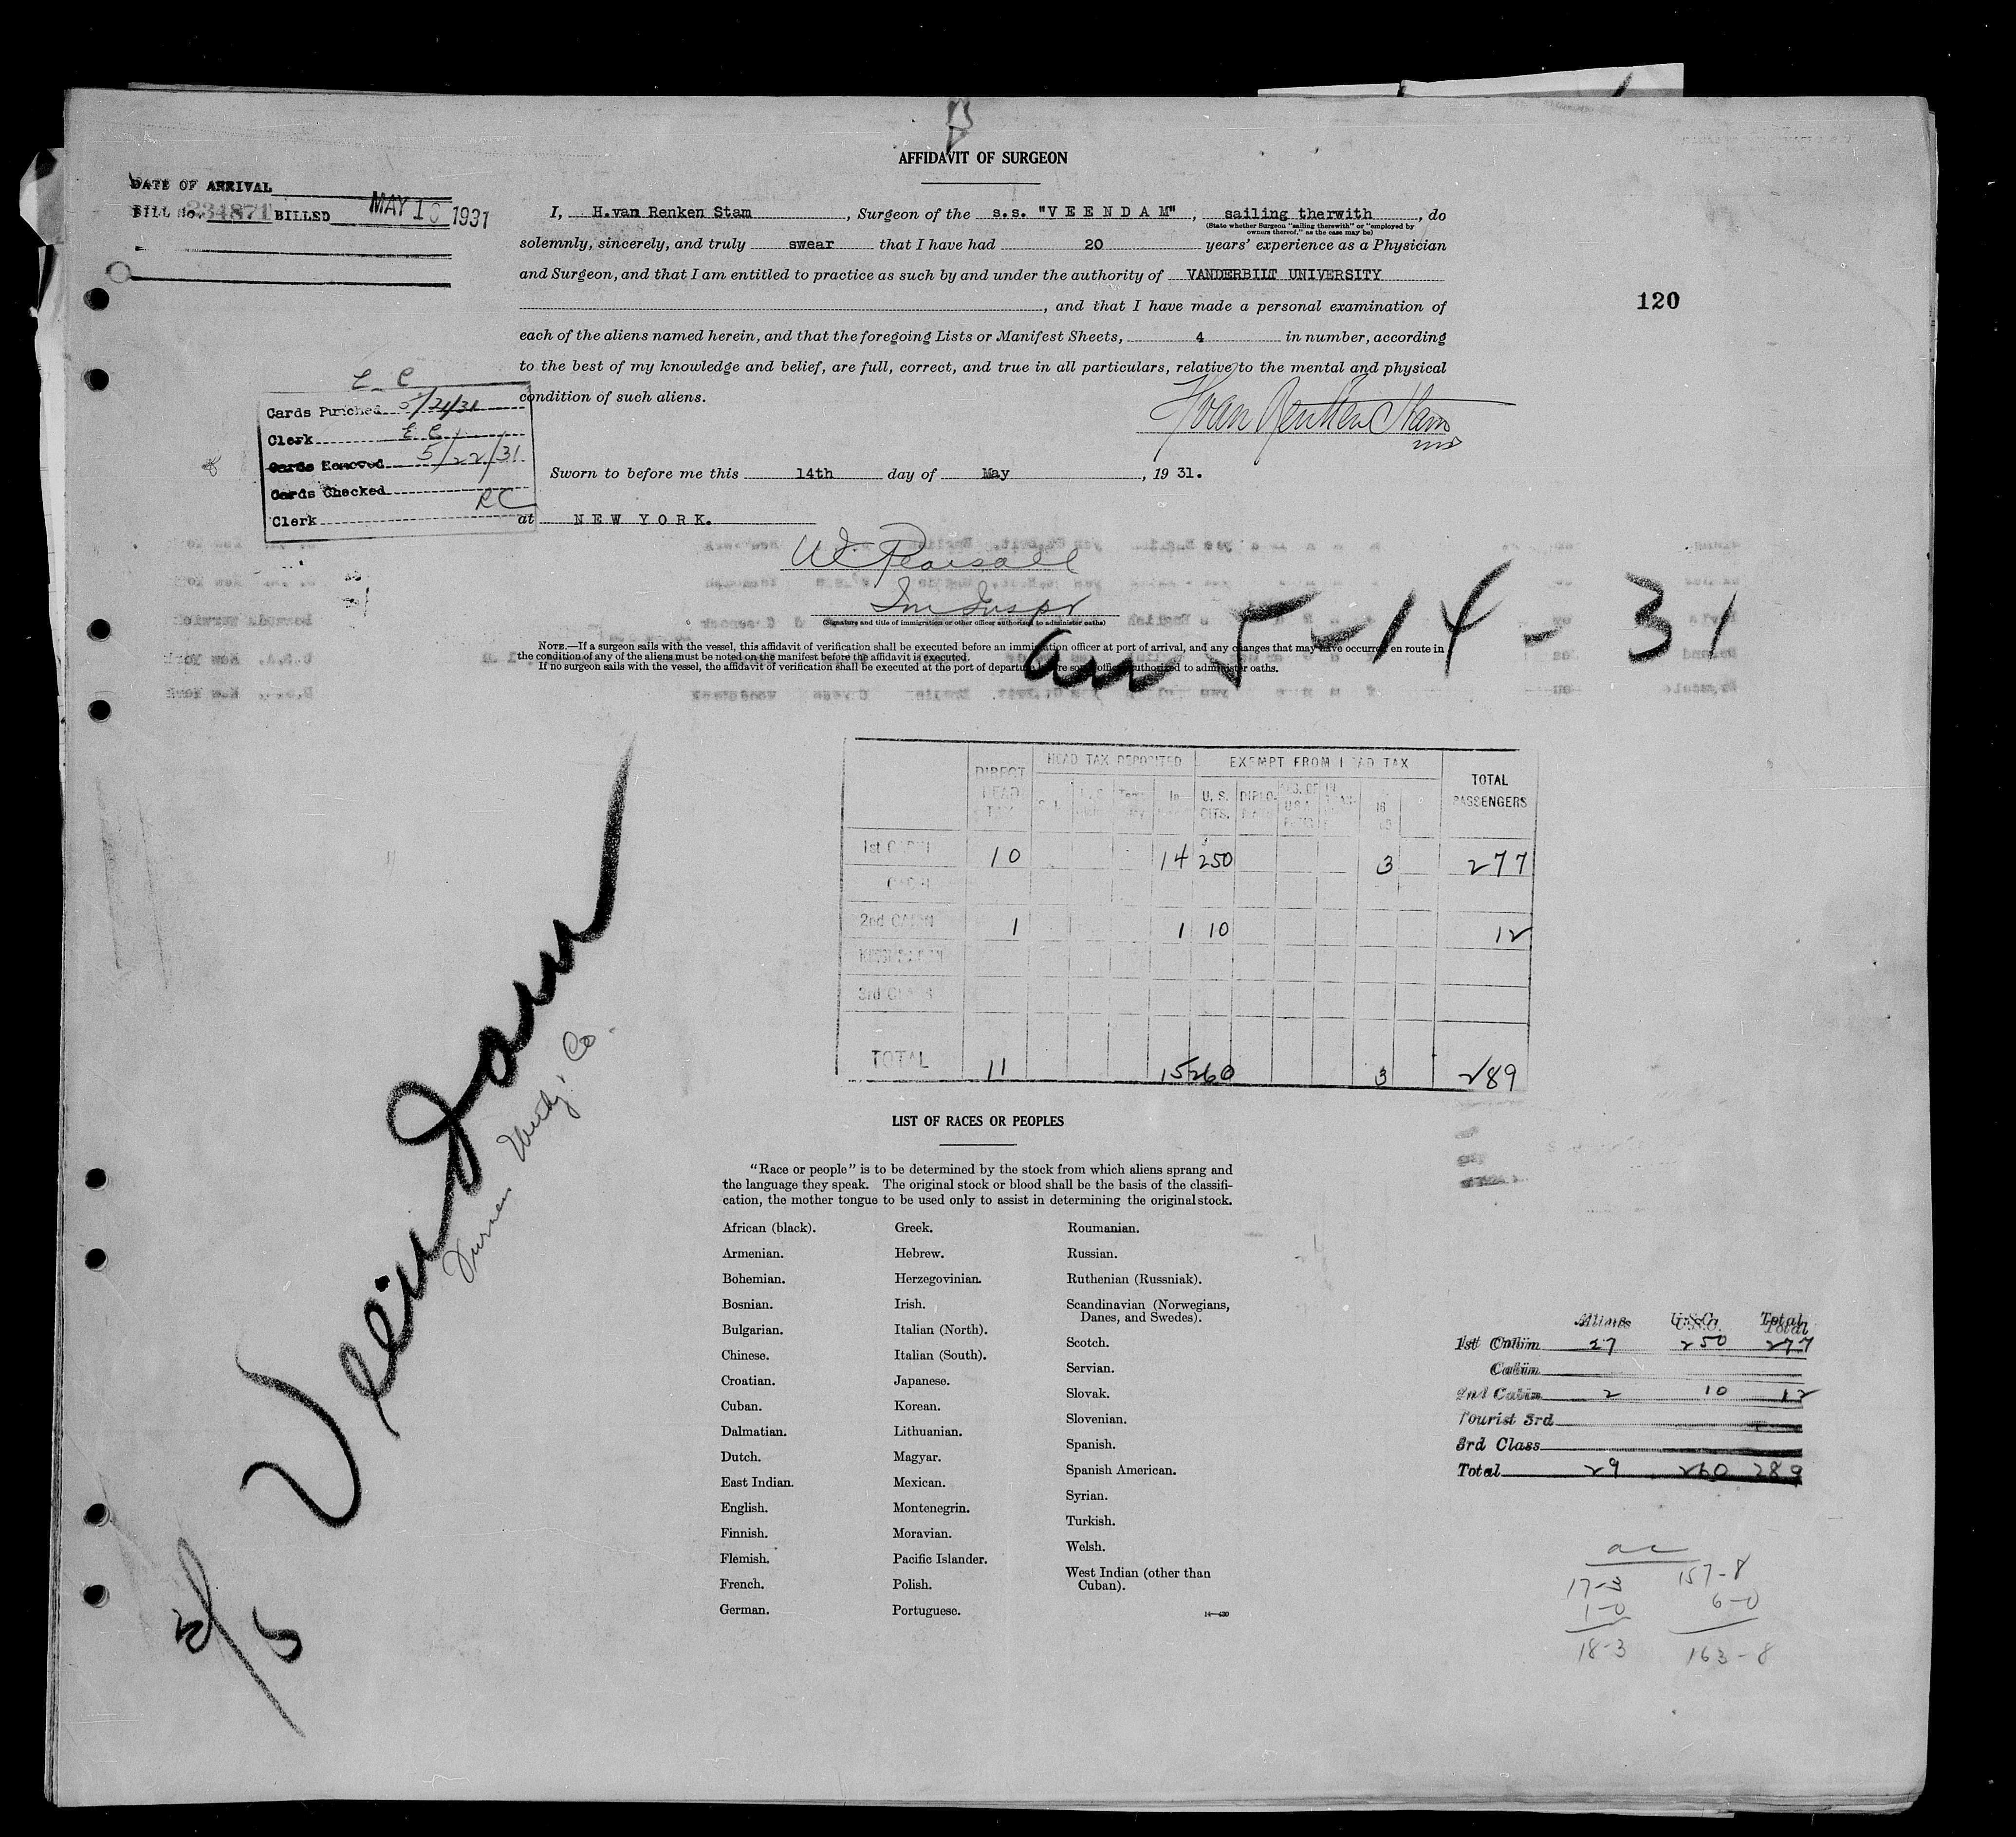 AFFIDAVIT OF SURGEON
DATE OF ARRIVAL
BILL No. 234871 BILLED MAY 1 1931
I, H.van Renken Stam, Surgeon of the s.s. "V E E N D A M", sailing therwith, do
(State whether Surgeon "sailing therewith" or "employed by
owners thereof," as the case may be)
solemnly, sincerely, and truly swear that I have had 20 years' experience as a Physician
and Surgeon, and that I am entitled to practice as such by and under the authority of VANDERBILT UNIVERSITY
, and that I have made a personal examination of
120
each of the aliens named herein, and that the foregoing Lists or Manifest Sheets, 4 in number, according
to the best of my knowledge and belief, are full, correct, and true in all particulars, relative to the mental and physical
condition of such aliens.
E C
Cards Punched 5/21/31
Clerk E C
Cards Removed 5/22/31
Cards Checked
Clerk RC
H van Renken Stam
MD
Sworn to before me this 14th day of May, 19 31.
at N E W Y O R K.
W Pearsall
Im Inspr
(Signature and title of immigration or other officer authorized to administer oaths)
NOTE.—If a surgeon sails with the vessel, this affidavit of verification shall be executed before an immigration officer at port of arrival, and any changes that may have occurred en route in
the condition of any of the aliens must be noted on the manifest before the affidavit is executed.
If no surgeon sails with the vessel, the affidavit of verification shall be executed at the port of departure before some officer authorized to administer oaths.
arr 5-14-31
DIRECT HEAD TAX HEAD TAX DEPOSITED EXEMPT FROM HEAD TAX TOTAL PASSENGERS
U. S. CITS. DIPLO.
1st CABIN 10 14 250 3 277
CABIN
2nd CABIN 1 1 10 12
3rd CLASS
TOTAL 11 15 260 3 289
Veendam
Co.
LIST OF RACES OR PEOPLES
"Race or people" is to be determined by the stock from which aliens sprang and
the language they speak. The original stock or blood shall be the basis of the classifi-
cation, the mother tongue to be used only to assist in determining the original stock.
African (black).
Armenian.
Bohemian.
Bosnian.
Bulgarian.
Chinese.
Croatian.
Cuban.
Dalmatian.
Dutch.
East Indian.
English.
Finnish.
Flemish.
French.
German.
Greek.
Hebrew.
Herzegovinian.
Irish.
Italian (North).
Italian (South).
Japanese.
Korean.
Lithuanian.
Magyar.
Mexican.
Montenegrin.
Moravian.
Pacific Islander.
Polish.
Portuguese.
Roumanian.
Russian.
Ruthenian (Russniak).
Scandinavian (Norwegians,
Danes, and Swedes).
Scotch.
Servian.
Slovak.
Slovenian.
Spanish.
Spanish American.
Syrian.
Turkish.
Welsh.
West Indian (other than
Cuban).
Aliens U.S.C. Total
1st Cabin 27 250 277
Cabin
2nd Cabin 2 10 12
Tourist 3rd
3rd Class
Total 29 260 289
a c
17-3 157-8
1-0 6-0
18-3 163-8